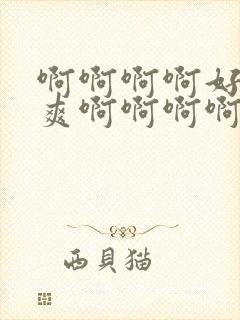 啊啊啊啊好
爽啊啊啊啊
西貝猫